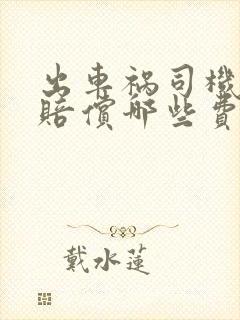 出車禍司機
賠償哪些費
戴水蓮